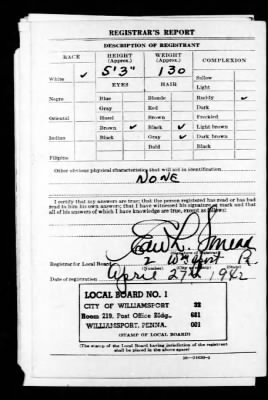 REGISTRAR'S REPORT
DESCRIPTION OF REGISTRANT
RACE HEIGHT (Approx.) WEIGHT (Approx.) COMPLEXION
5'3" 130
White ✓ Sallow
EYES HAIR Light
Negro Blue Blonde Ruddy ✓
Gray Red Dark
Oriental Hazel Brown Freckled
Brown ✓ Black ✓ Light brown
Indian Black Gray ✓ Dark brown
Bald Black
Filipino
Other obvious physical characteristics that will aid in identification
NONE
I certify that my answers are true; that the person registered has read or has had
read to him his own answers; that I have witnessed his signature or mark and that
all of his answers of which I have knowledge are true, except as follows:
Registrar for Local Board 2 Pa.
(Number)
Date of registration April 27th 1942
LOCAL BOARD NO. 1
CITY OF WILLIAMSPORT 22
Room 219, Post Office Bldg. 081
WILLIAMSPORT, PENNA. 001
(STAMP OF LOCAL BOARD)
(The stamp of the Local Board having jurisdiction of the registrant
shall be placed in the above space)